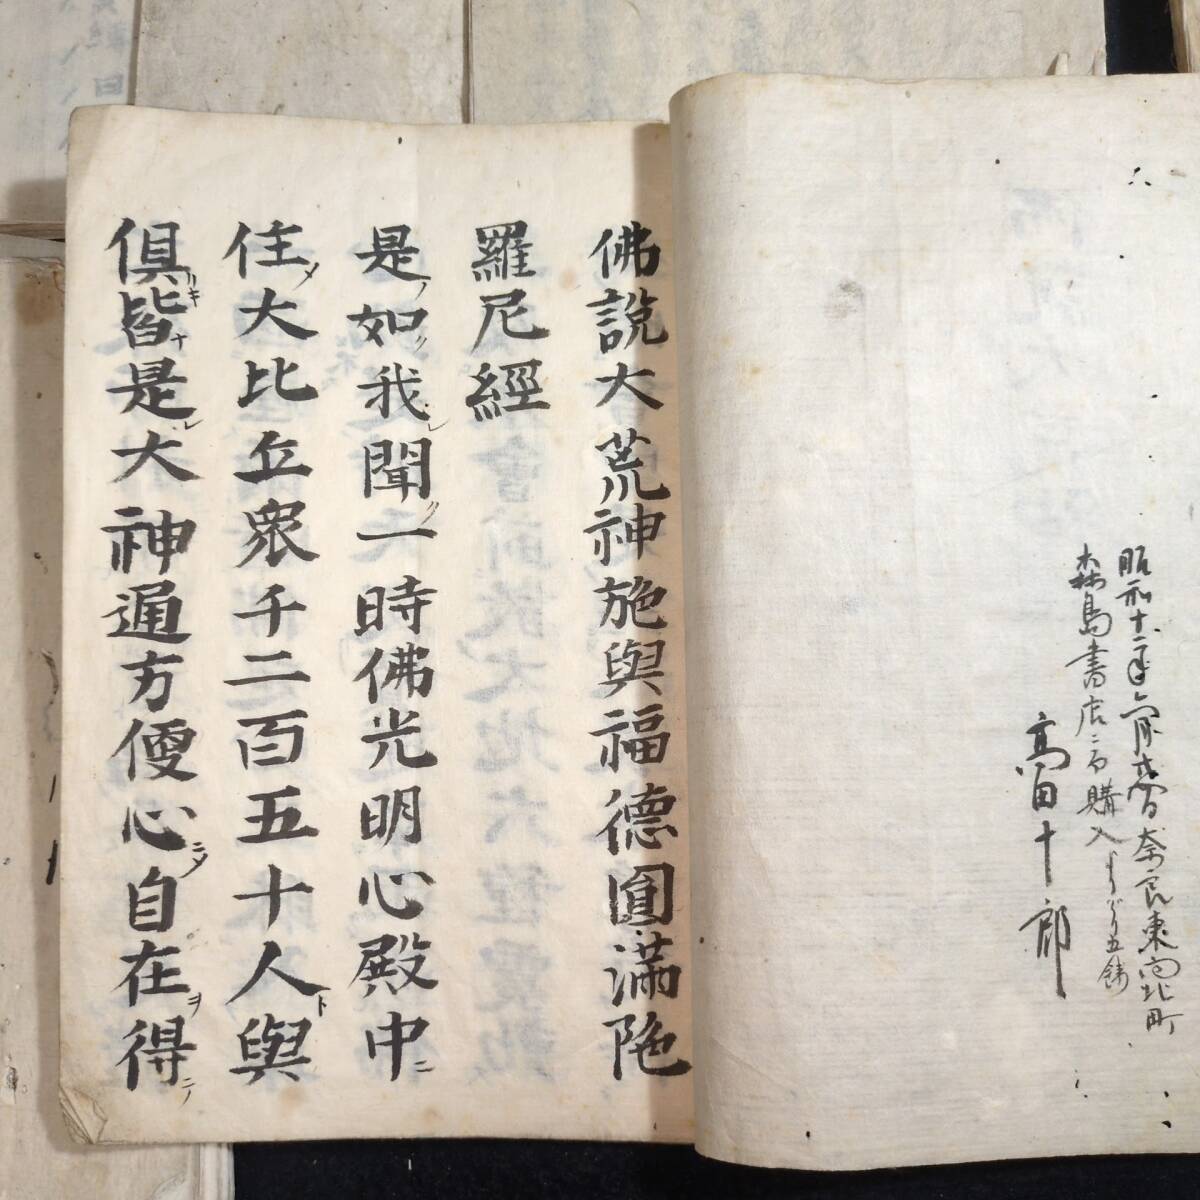 昭和十二年六月廿八日奈良東向北町
森島書店ニテ購入
高田十郎
佛說大荒神施與福德圓滿陀
羅尼經
是如我聞一時佛光明心殿中
住大比丘衆千二百五十人與
俱皆是大神通方便心自在得